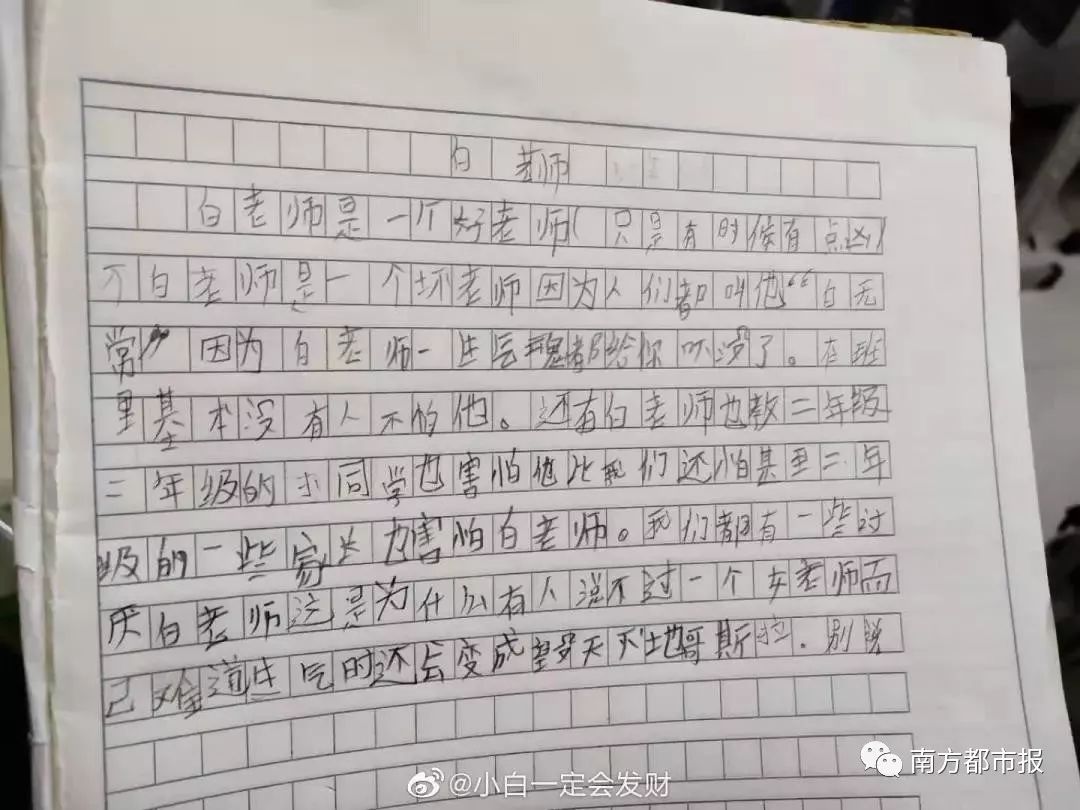 白老师
白老师是一个好老师(只是有时候有点凶)
不白老师是一个坏老师因为人们都叫他“白无
常”因为白老师一生气魂都给你吓没了。在班
里基本没有人不怕他。还有白老师也教二年级
二年级的小同学也害怕他比我们还怕甚至二年
级的一些家长也害怕白老师。我们都有一些讨
厌白老师这是为什么有人说不过一个女老师而
己难道生气时还会变成毁天灭地哥斯拉.别说
@小白一定会发财
南方都市报